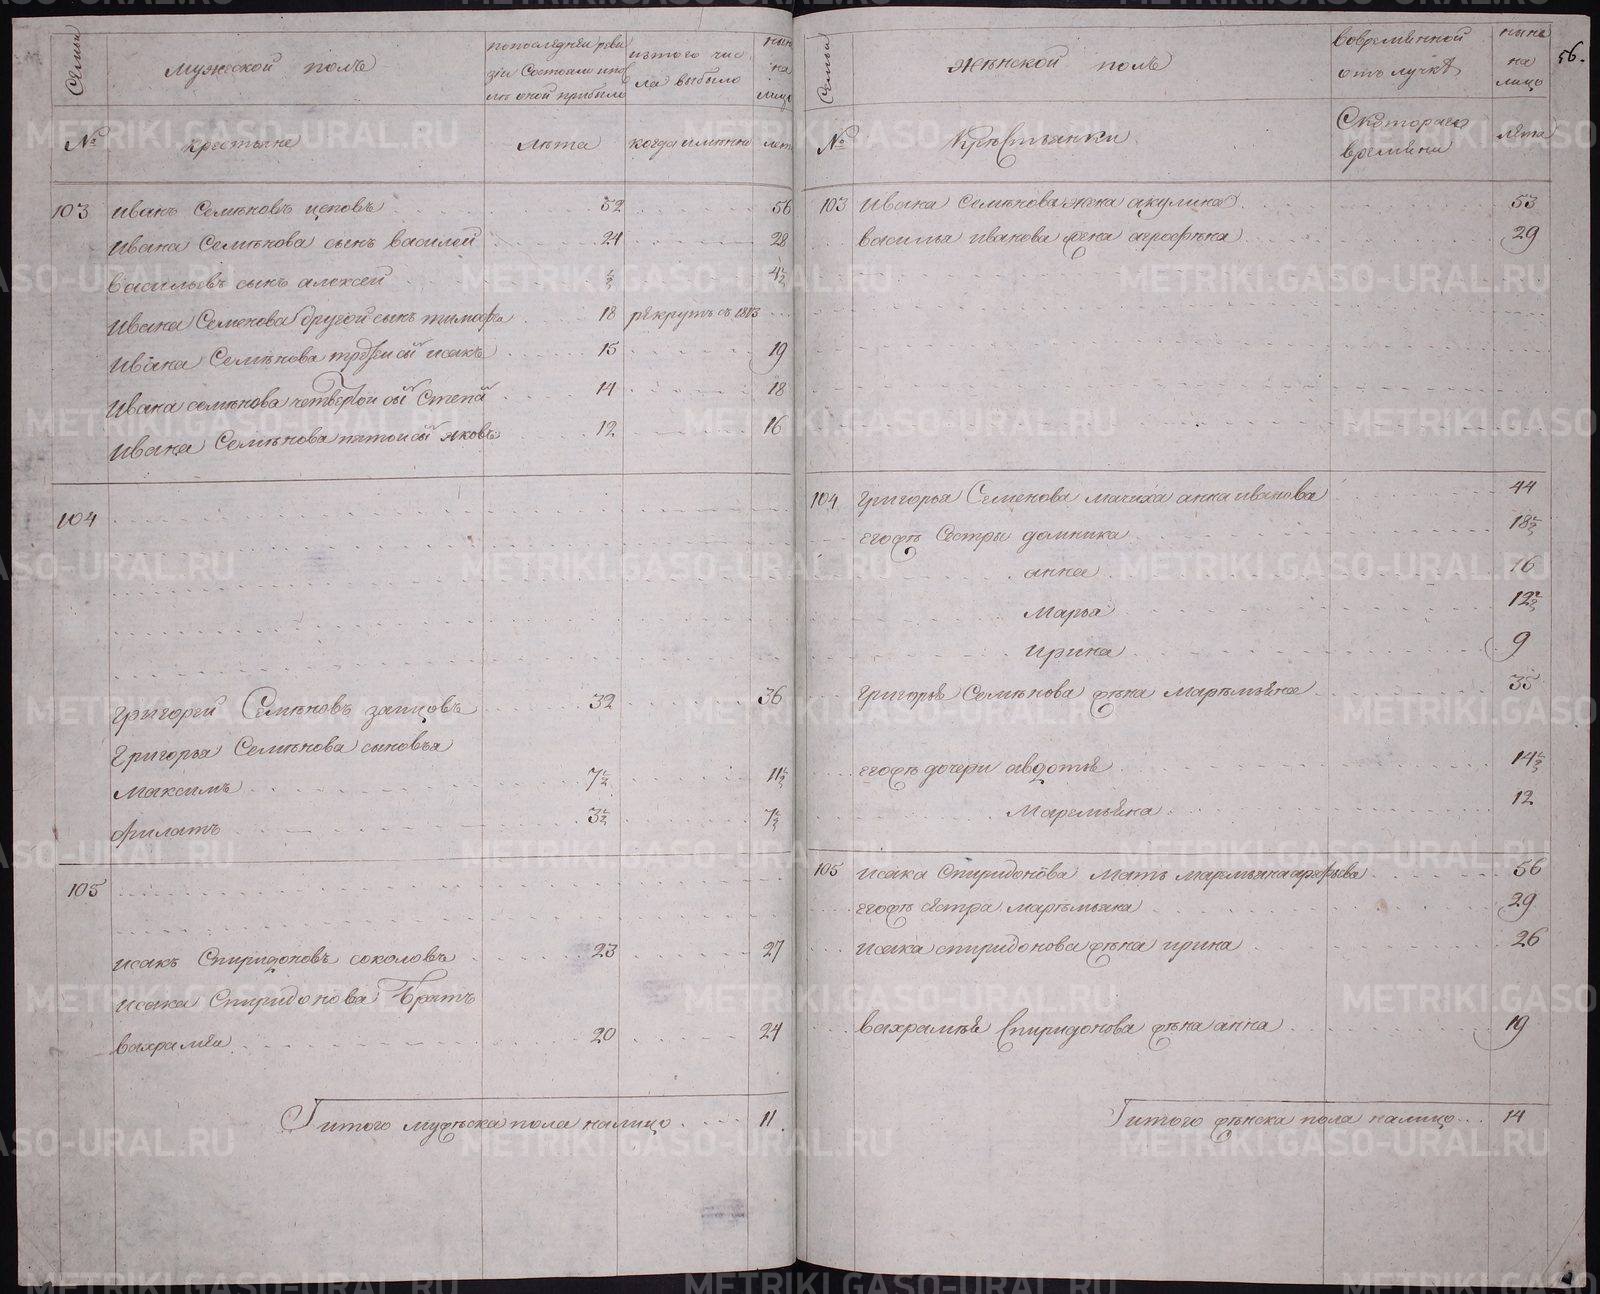 Семьи
мужеской полъ
попоследнеи реви
зіи Состояло ипос
ле оной прибыло
изтого чис
ла выбыло
ныне
на
лицо
№
крестьяне
лета
когда имянно
лета
103 иванъ Семеновъ цеповъ 52 56
ивана Семенова сынъ василеи 24 28
васильевъ сынъ алексеи ½ 4½
ивана Семенова другой сынъ тимофеи 18 рекрутъ съ 1813
ивана Семенова третеи сынъ исакъ 15 19
ивана семенова четвертои сынъ Степанъ 14 18
ивана Семенова пятои сынъ яковъ 12 16
104
григореи Семеновъ заицовъ 32 36
григорья Семенова сыновья
Максимъ 7½ 11½
филатъ 3½ 7½
105
исакъ Спиридоновъ соколовъ 23 27
исака Спиридонова братъ
вахрамеи 20 24
итого мужеска пола налицо 11
56.
Семьи
женской полъ
вовременной
отлучке
ныне
на
лицо
№
крестьянки
Скотораго
времени
лета
103 ивана Семенова жена акулина 53
василья иванова жена агрофена 29
104 григорья Семенова мачиха анна иванова 44
егожъ Сестры домника 18½
анна 16
Марья 12½
ирина 9
григорья Семенова жена маремьяна 35
егожъ дочери авдотья 14½
Маремьяна 12
105 исака Спиридонова мать маремьяна 56
егожъ сестра маремьяна 29
исака спиридонова жена ирина 26
вахрамея Спиридонова жена анна 19
итого женска пола налицо 14
METRIKI.GASO-URAL.RU